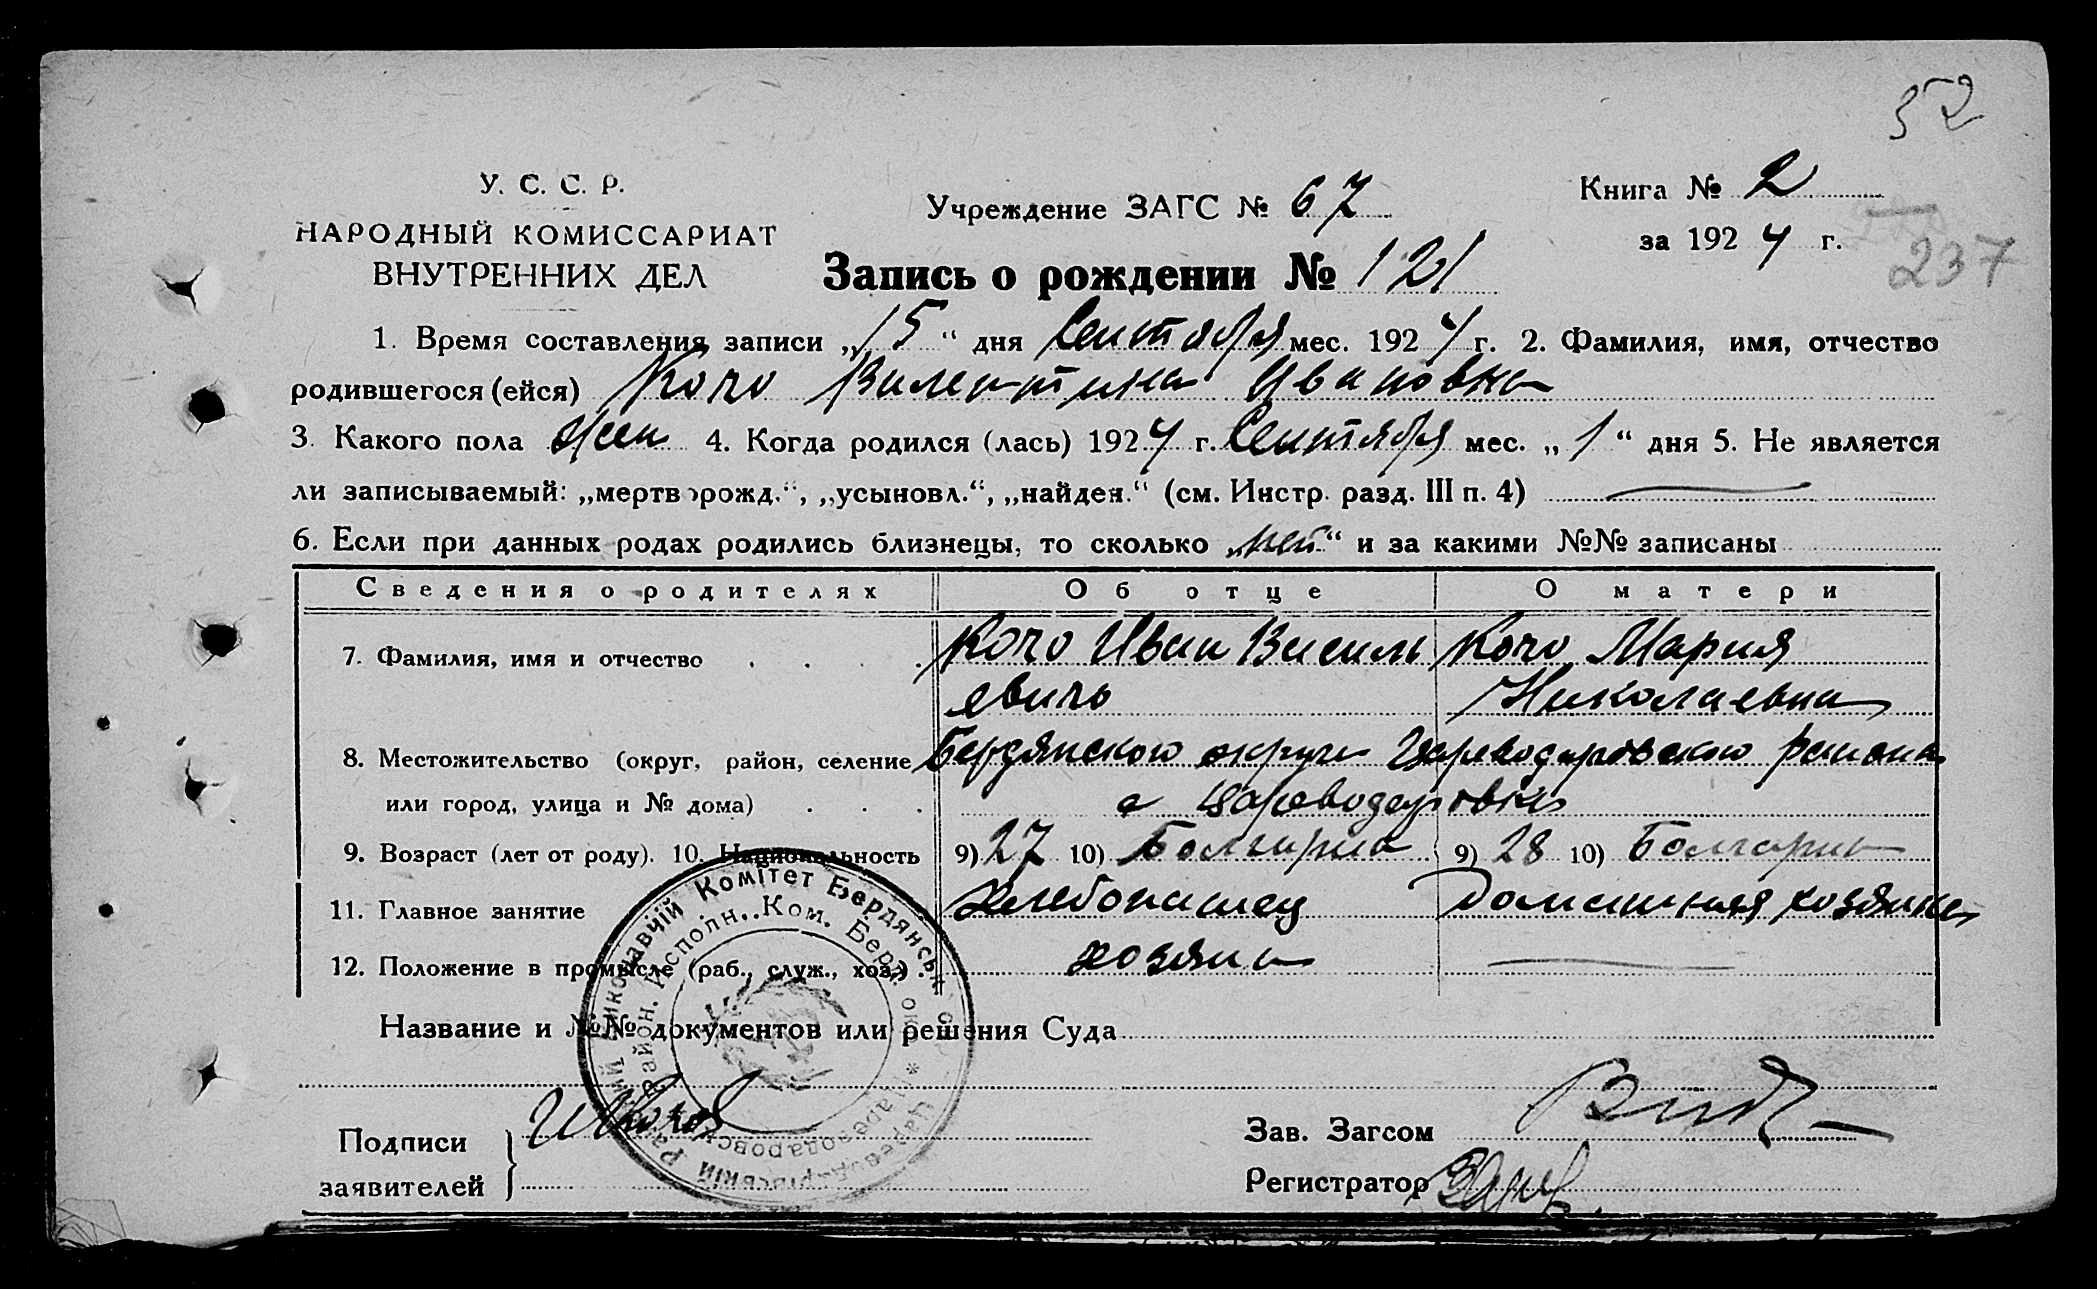 52
У. С. С. Р.
НАРОДНЫЙ КОМИССАРИАТ
ВНУТРЕННИХ ДЕЛ
Учреждение ЗАГС № 67
Книга № 2
за 1924 г.
237
Запись о рождении № 121
1. Время составления записи „15“ дня Сентября мес. 1924 г. 2. Фамилия, имя, отчество
родившегося (ейся) Кочо Валентина Ивановна
3. Какого пола жен 4. Когда родился (лась) 1924 г. Сентября мес. „1“ дня 5. Не является
ли записываемый: „мертворожд.“, „усыновл.“, „найден.“ (см. Инстр. разд. III п. 4) —
6. Если при данных родах родились близнецы, то сколько „нет“ и за какими №№ записаны
Сведения о родителях Об отце О матери
7. Фамилия, имя и отчество . . . . Кочо Иван Василь Кочо Мария
евичь Николаевна
8. Местожительство (округ, район, селение Бердянского округа Цареводаровского района
или город, улица и № дома) . . . с Цареводаровка
9. Возраст (лет от роду). 10. Национальность 9) 27 10) Болгарин 9) 28 10) Болгарка
11. Главное занятие хлебопашец Домашняя хозяйка
12. Положение в промысле (раб., служ., хоз.) . хозяин —
Название и №№ документов или решения Суда
Подписи
заявителей
Зав. Загсом
Регистратор
Виконавчій Комітет Бердянськ
Район. Исполн. Ком. Берд. окр. * Цареводаровск